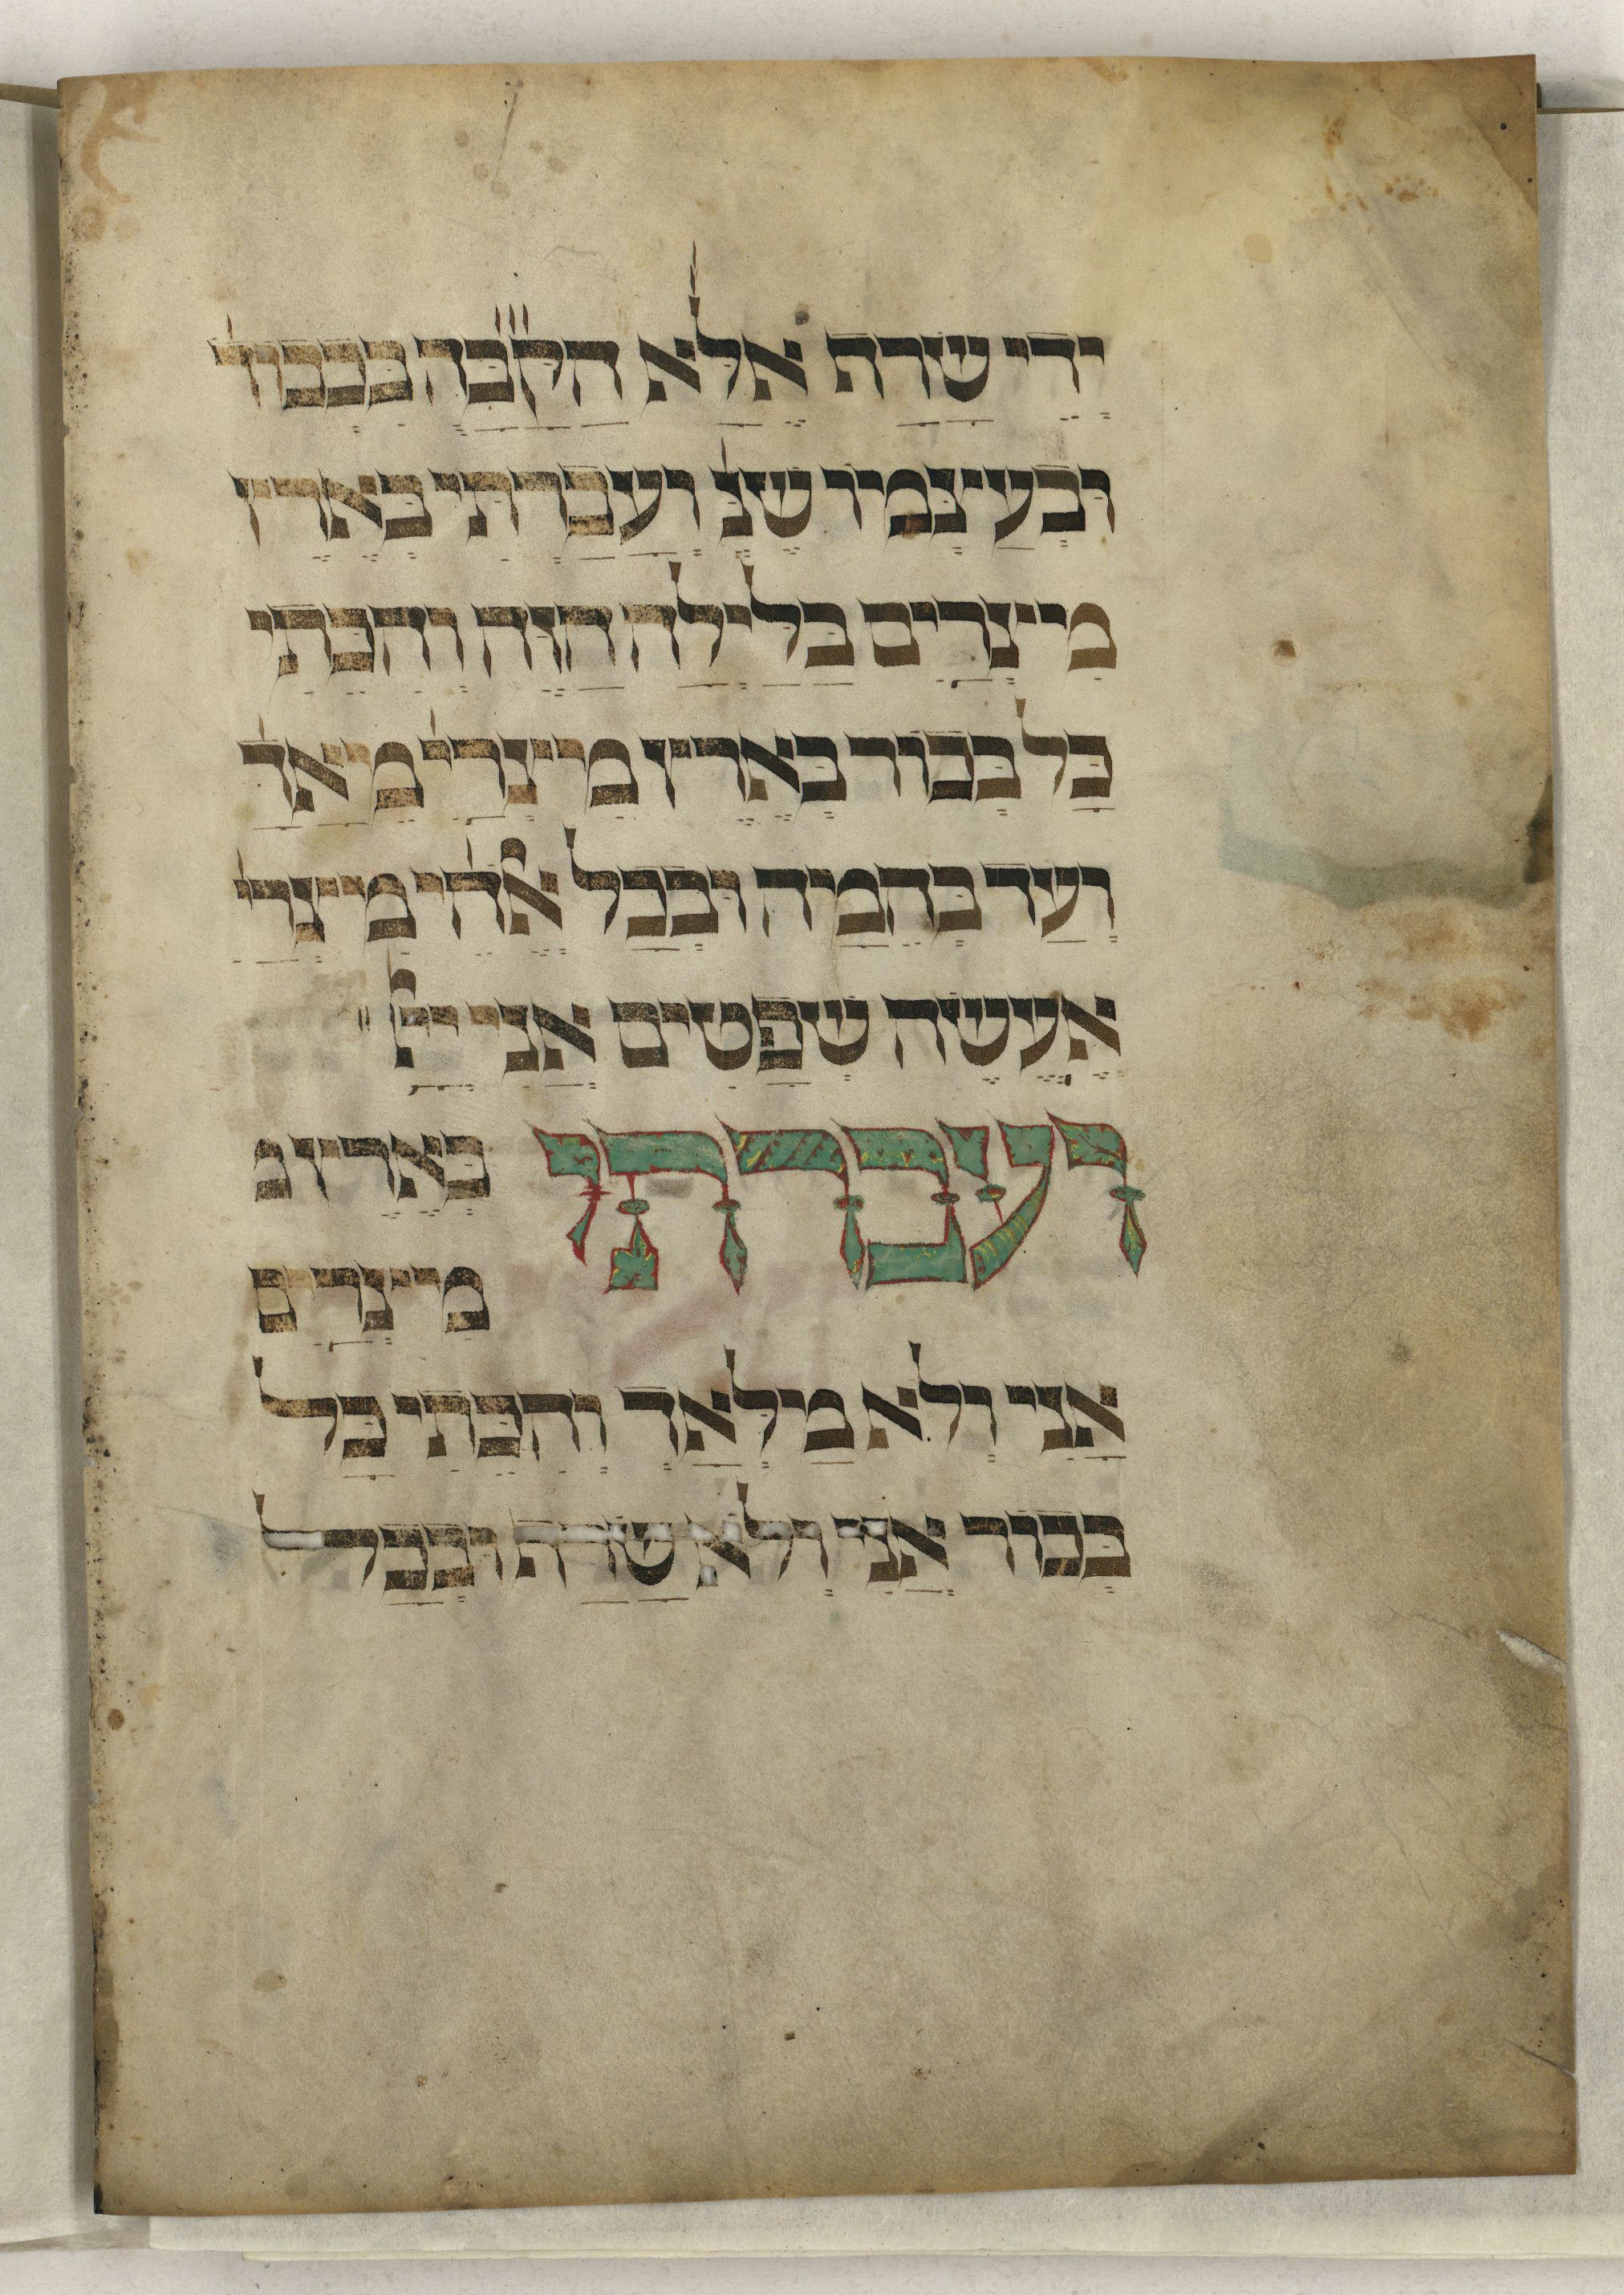 יְדֵי שָׂרַף אֶלָּא הַקָבָּ֗֗֗ה בִּכְבוֹדוֹ
וּבְעַיצְמוֹ שֶׁנֶּ֗ וְעָבַרְתִּי בְאֶרֶץ
מִיצְרַיִם בַּלַּיְלָה הַזֶּה וְהִכֵּתִי
כָּל בְּכוֹר בְּאֶרֶץ מִיצְרַי֗ מֵיאָד֗
וְעַד בְּהֵמָיה וּבְכָל אֱלֹהֵי֗ מִיצְרַ֗
אֶעֱשֶׂה שְׁפָטִים אֲנִי יְיָ
וְעָבַרְתִּי בְּאֶרֶץ מ
מִיצְרַיִם
אֲנִי וְלֹא מַלְאָךְ וְהִכֵּתִי כָּל
בְּכוֹר אֲנִי וְלֹא שָׂרָף וּבְכָל